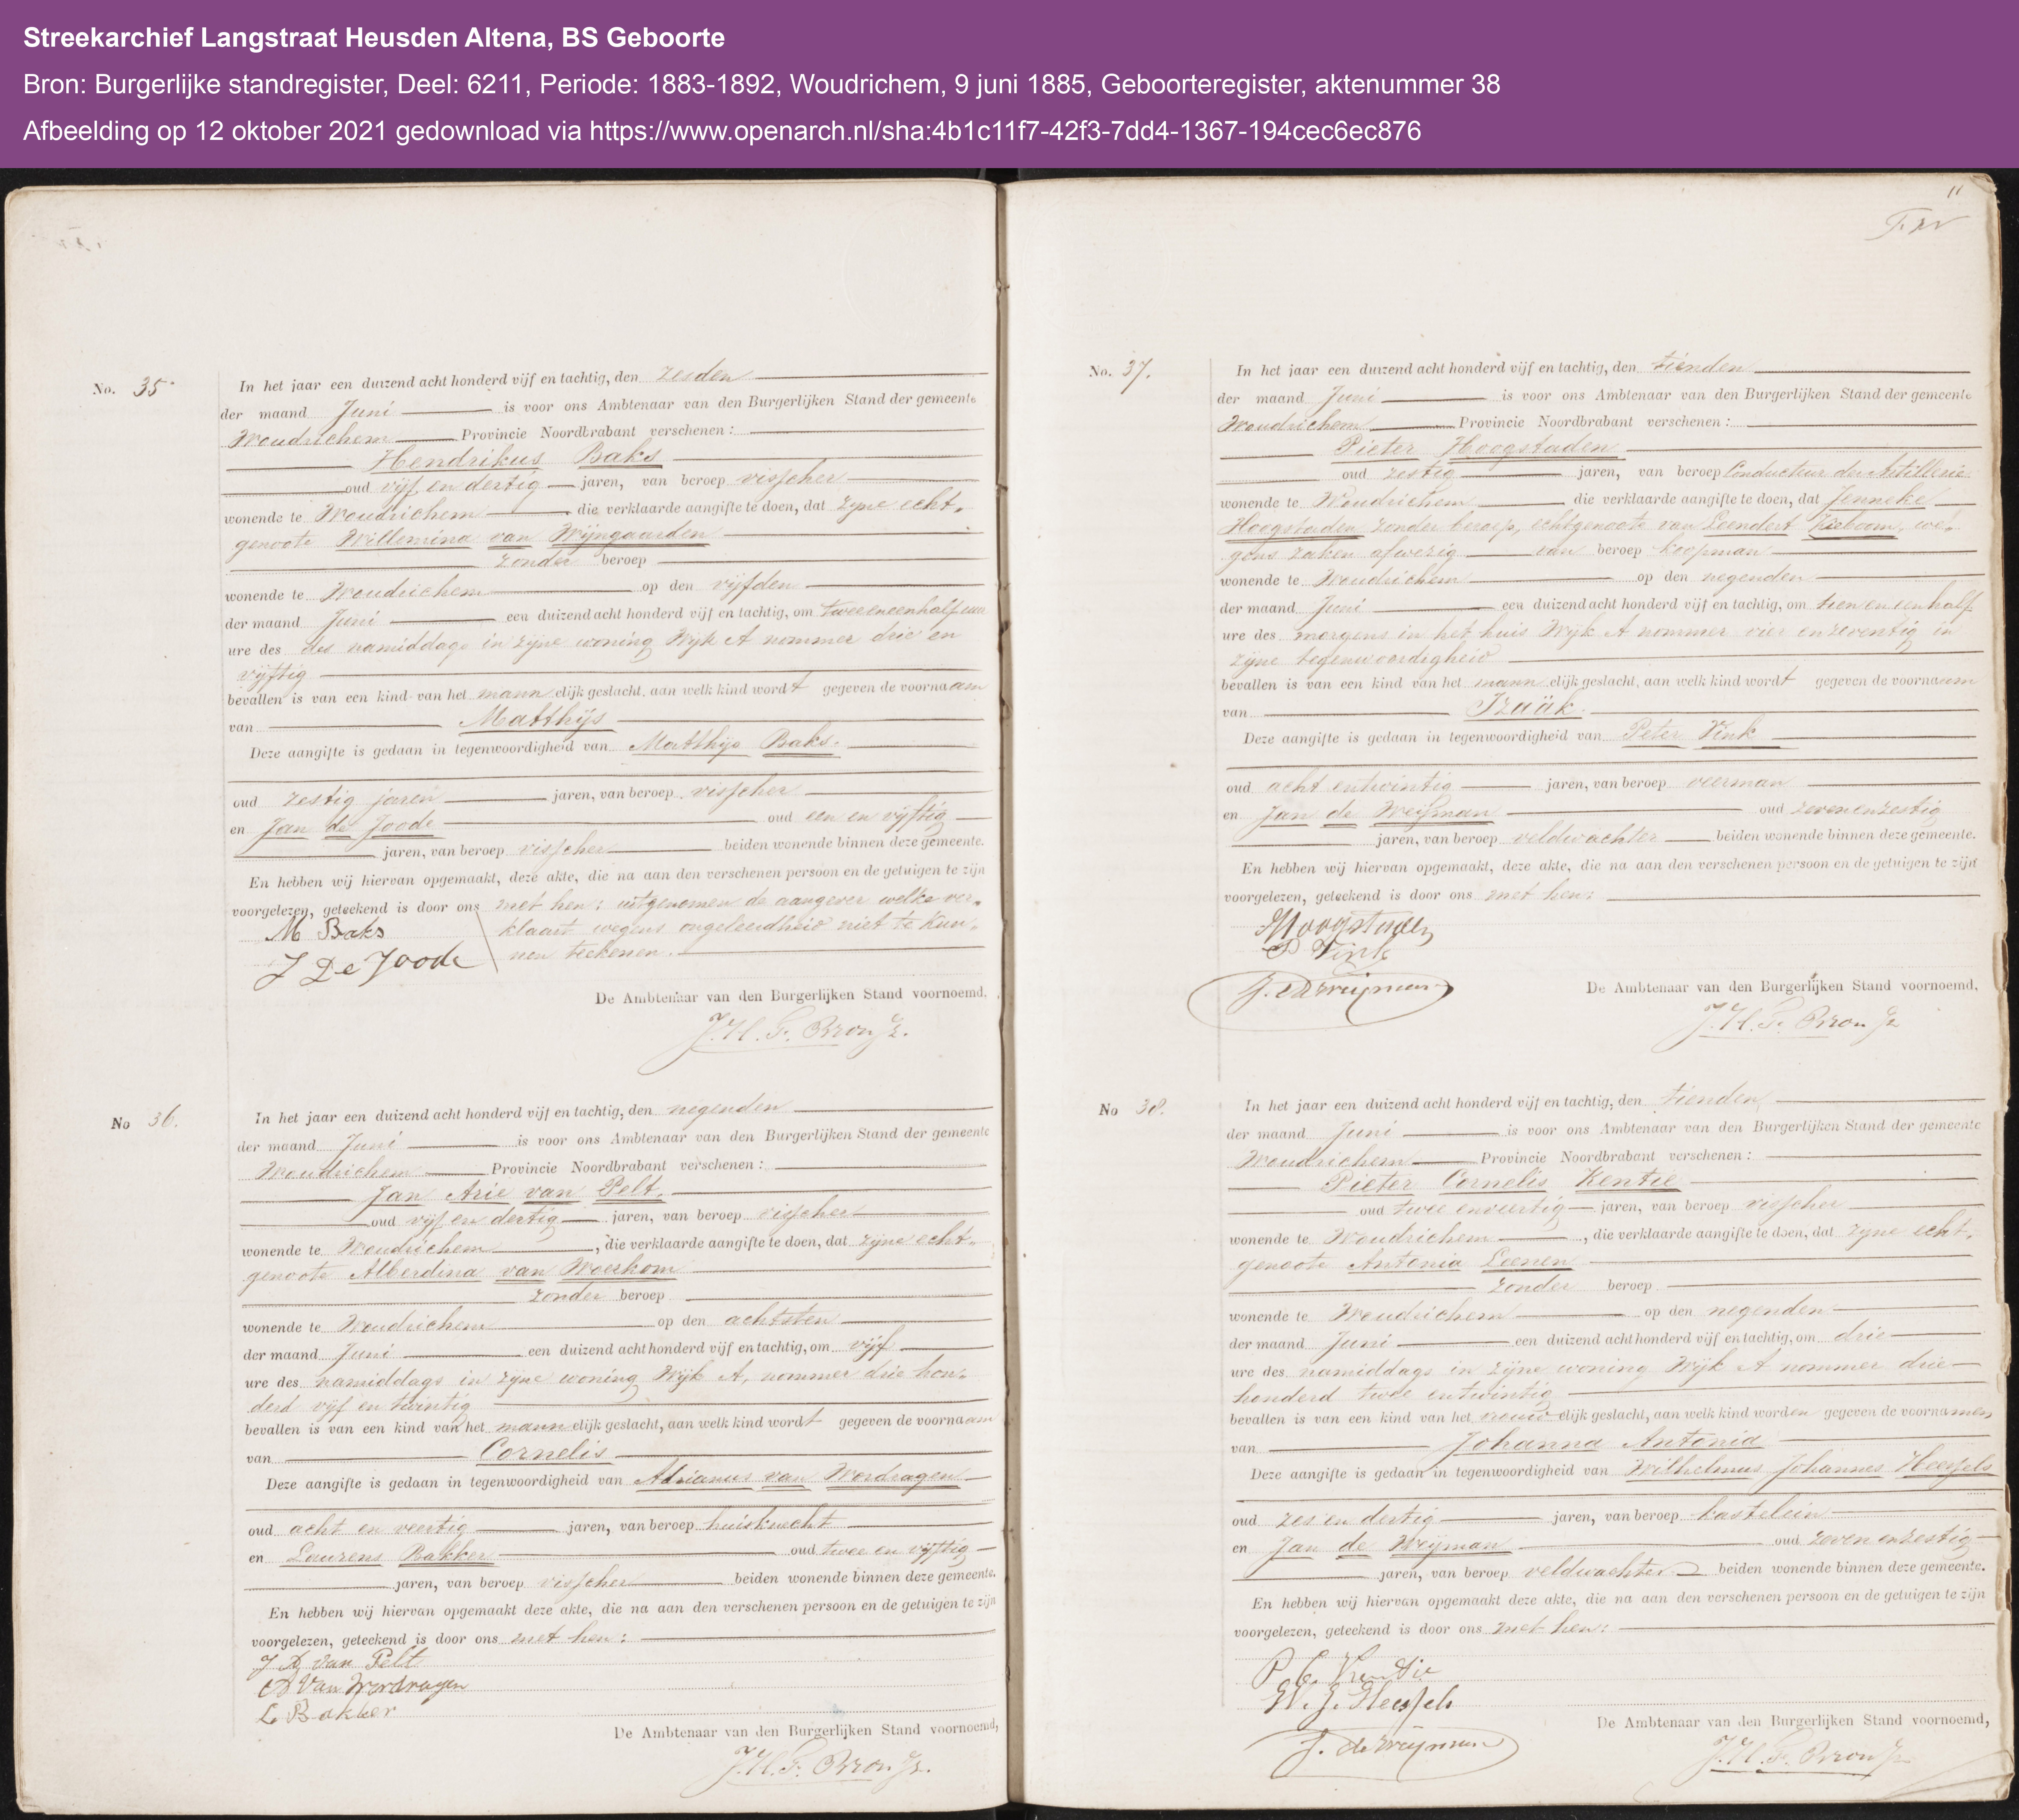 Streekarchief Langstraat Heusden Altena, BS Geboorte
Bron: Burgerlijke standregister, Deel: 6211, Periode: 1883-1892, Woudrichem, 9 juni 1885, Geboorteregister, aktenummer 38
Afbeelding op 12 oktober 2021 gedownload via https://www.openarch.nl/sha:4b1c11f7-42f3-7dd4-1367-194cec6ec876
No. 35
In het jaar een duizend acht honderd vijf en tachtig, den zesden
der maand Juni is voor ons Ambtenaar van den Burgerlijken Stand der gemeente
Woudrichem Provincie Noordbrabant verschenen:
Hendrikus Baks
oud vijf en dertig jaren, van beroep visscher
wonende te Woudrichem die verklaarde aangifte te doen, dat zijne echt-
genoote Willemina van Wijngaarden
zonder beroep
wonende te Woudrichem op den vijfden
der maand Juni een duizend acht honderd vijf en tachtig, om tweeeneenhalf uur
ure des des namiddags in zijne woning Wijk A nommer drie en
vijftig
bevallen is van een kind van het mannelijk geslacht, aan welk kind wordt gegeven de voornaam
van Matthijs
Deze aangifte is gedaan in tegenwoordigheid van Matthijs Baks.
oud zestig jaren jaren, van beroep visscher
en Jan de Joode oud een en vijftig
jaren, van beroep visscher beiden wonende binnen deze gemeente.
En hebben wij hiervan opgemaakt, deze akte, die na aan den verschenen persoon en de getuigen te zijn
voorgelezen, geteekend is door ons met hen; uitgenomen de aangever welke ver-
klaart wegens ongeleerdheid niet te kun-
nen teekenen.
M Baks
J De Joode
De Ambtenaar van den Burgerlijken Stand voornoemd,
J.H.F. Bron Jr.
No 36.
In het jaar een duizend acht honderd vijf en tachtig, den negenden
der maand Juni is voor ons Ambtenaar van den Burgerlijken Stand der gemeente
Woudrichem Provincie Noordbrabant verschenen:
Jan Arie van Pelt,
oud vijf en dertig jaren, van beroep visscher
wonende te Woudrichem, die verklaarde aangifte te doen, dat zijne echt-
genoote Alberdina van Woerkom
zonder beroep
wonende te Woudrichem op den achtsten
der maand Juni een duizend acht honderd vijf en tachtig, om vijf
ure des namiddags in zijne woning Wijk A, nommer drie hon-
derd vijf en twintig
bevallen is van een kind van het mannelijk geslacht, aan welk kind wordt gegeven de voornaam
van Cornelis
Deze aangifte is gedaan in tegenwoordigheid van Adrianus van Wordragen
oud acht en veertig jaren, van beroep huisknecht
en Laurens Bakker oud twee en vijftig
jaren, van beroep visscher beiden wonende binnen deze gemeente.
En hebben wij hiervan opgemaakt deze akte, die na aan den verschenen persoon en de getuigen te zijn
voorgelezen, geteekend is door ons met hen:
J A van Pelt
A Van Wordragen
L Bakker
De Ambtenaar van den Burgerlijken Stand voornoemd,
J.H.F. Bron Jr.
11
No. 37.
In het jaar een duizend acht honderd vijf en tachtig, den tienden
der maand Juni is voor ons Ambtenaar van den Burgerlijken Stand der gemeente
Woudrichem Provincie Noordbrabant verschenen:
Pieter Hoogstaden
oud zestig jaren, van beroep Conducteur der Artillerie
wonende te Woudrichem die verklaarde aangifte te doen, dat Jenneke
Hoogstaden zonder beroep, echtgenoote van Leendert Zieboom, we-
gens zaken afwezig van beroep koopman
wonende te Woudrichem op den negenden
der maand Juni een duizend acht honderd vijf en tachtig, om tien en een half
ure des morgens in het huis Wijk A nommer vier en zeventig in
zijne tegenwoordigheid
bevallen is van een kind van het mannelijk geslacht, aan welk kind wordt gegeven de voornaam
van Izaäk.
Deze aangifte is gedaan in tegenwoordigheid van Peter Vink
oud acht en twintig jaren, van beroep veerman
en Jan de Weijman oud zeven en zestig
jaren, van beroep veldwachter beiden wonende binnen deze gemeente.
En hebben wij hiervan opgemaakt, deze akte, die na aan den verschenen persoon en de getuigen te zijn
voorgelezen, geteekend is door ons met hen:
Hoogstaden
P Vink
J. de Weijman
De Ambtenaar van den Burgerlijken Stand voornoemd,
J.H.F. Bron Jr
No 38.
In het jaar een duizend acht honderd vijf en tachtig, den tienden
der maand Juni is voor ons Ambtenaar van den Burgerlijken Stand der gemeente
Woudrichem Provincie Noordbrabant verschenen:
Pieter Cornelis Kentie
oud twee en veertig jaren, van beroep visscher
wonende te Woudrichem, die verklaarde aangifte te doen, dat zijne echt-
genoote Antonia Leenen
zonder beroep
wonende te Woudrichem op den negenden
der maand Juni een duizend acht honderd vijf en tachtig, om drie
ure des namiddags in zijne woning Wijk A nommer drie
honderd twee en twintig
bevallen is van een kind van het vrouwelijk geslacht, aan welk kind worden gegeven de voornamen
van Johanna Antonia
Deze aangifte is gedaan in tegenwoordigheid van Wilhelmus Johannes Heessels
oud zes en dertig jaren, van beroep kastelein
en Jan de Weijman oud zeven en zestig
jaren, van beroep veldwachter beiden wonende binnen deze gemeente.
En hebben wij hiervan opgemaakt deze akte, die na aan den verschenen persoon en de getuigen te zijn
voorgelezen, geteekend is door ons met hen:
P C. Kentie
W. J. Heessels
J. de Weijman
De Ambtenaar van den Burgerlijken Stand voornoemd,
J.H.F. Bron Jr